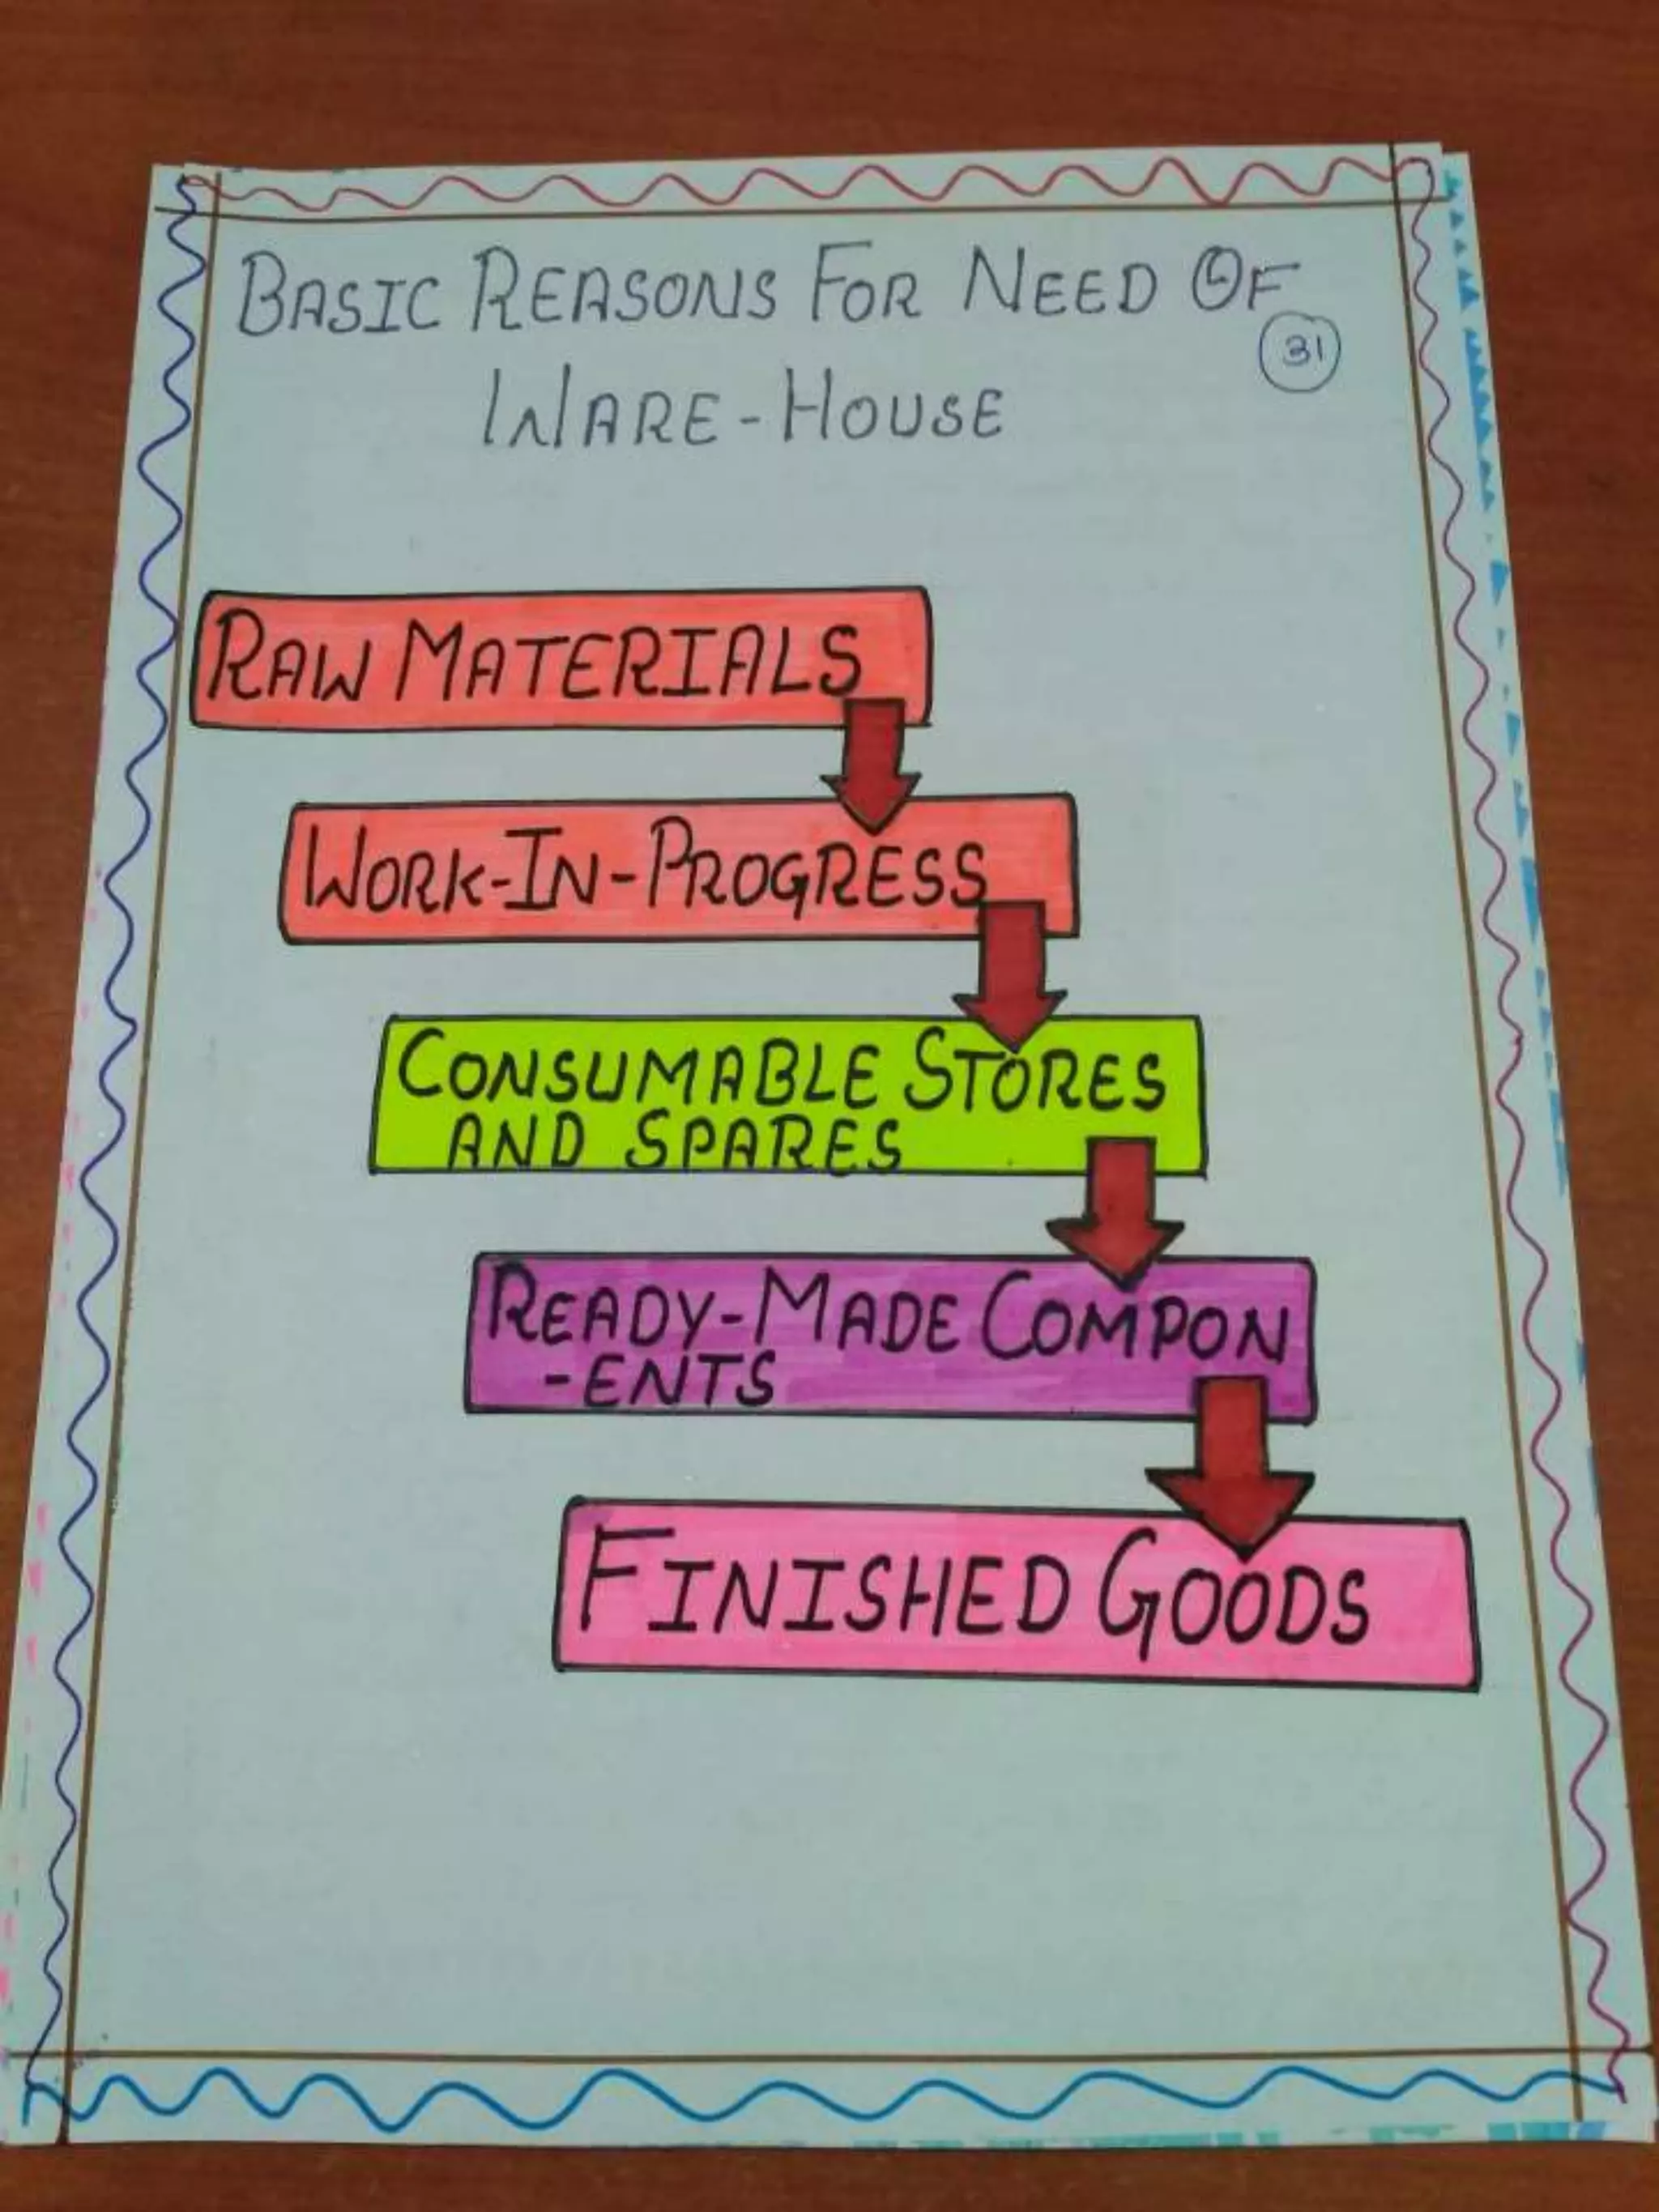 BASIC REASONS FOR NEED OF
31
WARE-HOUSE
RAW MATERIALS
WORK-IN-PROGRESS
CONSUMABLE STORES
AND SPARES
READY-MADE COMPON
-ENTS
FINISHED GOODS